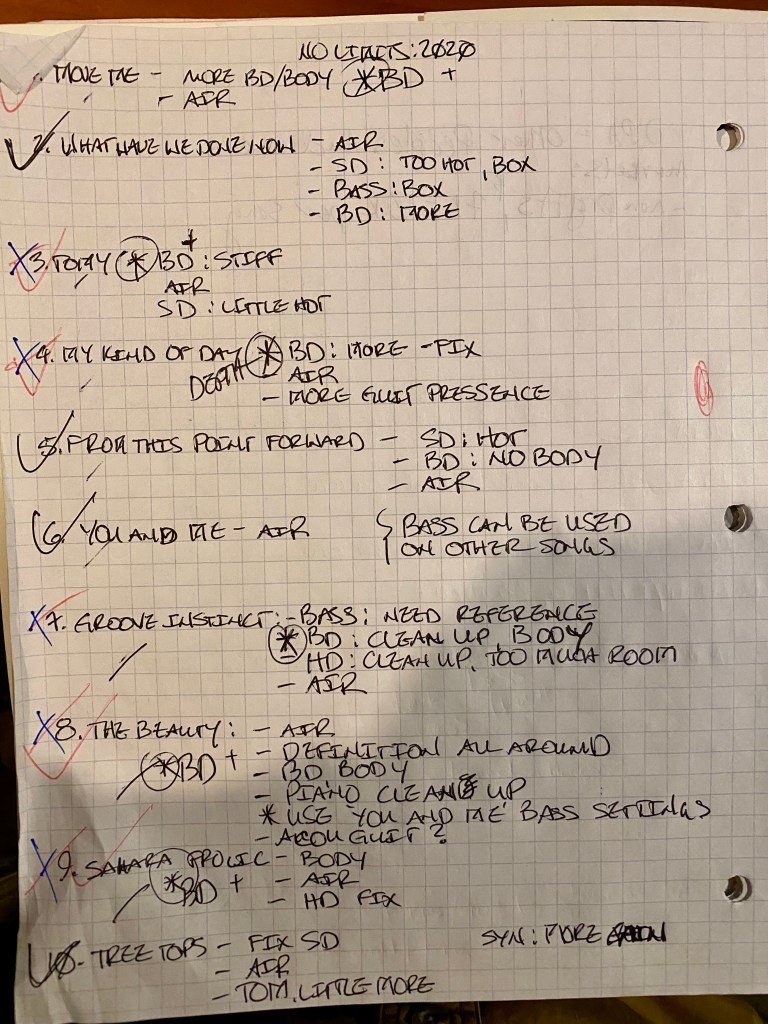 NO LIMITS: 2020
1. MOVE ME - MORE BD/BODY * BD +
- AIR
2. WHAT HAVE WE DONE NOW - AIR
- SD: TOO HOT, BOX
- BASS: BOX
- BD: MORE
+
3. TODAY * BD: STIFF
AIR
SD: LITTLE HOT
4. MY KIND OF DAY * BD: MORE - FIX
DEPTH AIR
- MORE GUIT PRESSENCE
5. FROM THIS POINT FORWARD - SD: HOT
- BD: NO BODY
- AIR
6. YOU AND ME - AIR { BASS CAN BE USED
ON OTHER SONGS
7. GROOVE INSTINCT: - BASS: NEED REFERENCE
* BD: CLEAN UP, BODY
- HD: CLEAN UP, TOO MUCH ROOM
- AIR
8. THE BEAUTY: - AIR
* BD + - DEFINITION ALL AROUND
- BD BODY
- PIANO CLEAN UP
* USE 'YOU AND ME' BASS SETTINGS
- ACOU GUIT?
9. SAHARA FROLIC - BODY
* BD + - AIR
- HD FIX
10. TREE TOPS - FIX SD SYN: MORE
- AIR
- TOM, LITTLE MORE